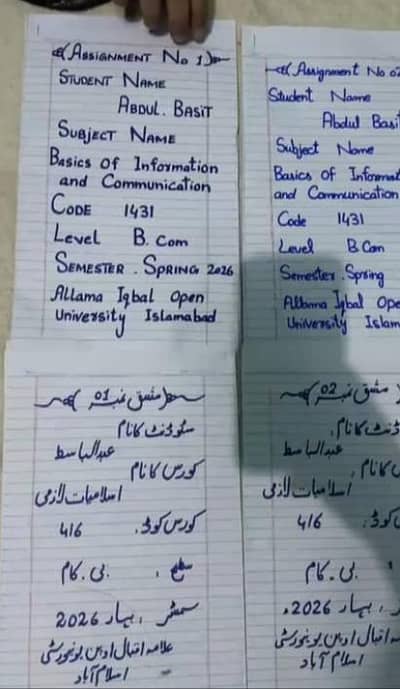 Assignment No 1
Student Name
Abdul. Basit
Subject Name
Basics Of Information
and Communication
Code 1431
Level B. Com
Semester. Spring 2026
Allama Iqbal Open
University Islamabad
Assignment No 02
Student Name
Abdul Basi
Subject Name
Basics of Informat
and Communication
Code 1431
Level B Com
Semester. Spring
Allama Iqbal Ope
University Islam
مشق نمبر 01
سٹوڈنٹ کا نام
عبدالباسط
کورس کا نام
اسلامیات لازمی
کورس کوڈ. 416
سطح . بی. کام
سمسٹر . بہار 2026
علامہ اقبال اوپن یونیورسٹی
اسلام آباد
مشق نمبر 02
ڈنٹ کا نام
عبدالباسط
کا نام
اسلامیات لازمی
کوڈ. 416
بی. کام
بہار 2026ء
اقبال اوپن یونیورسٹی
اسلام آباد